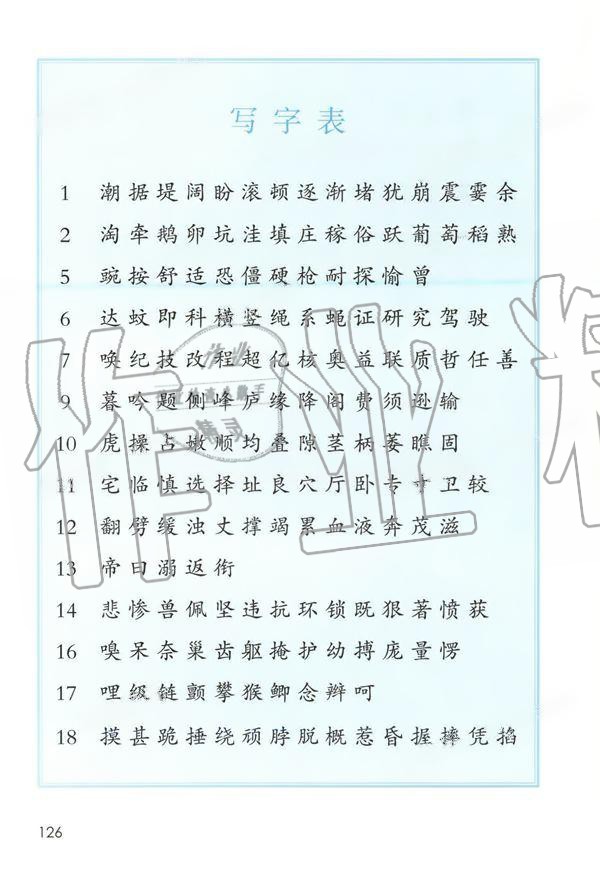 写字表
1 潮据堤阔盼滚顿逐渐堵犹崩震霎余
2 淘牵鹅卵坑洼填庄稼俗跃葡萄稻熟
5 豌按舒适恐僵硬枪耐探愉曾
6 达蚊即科横竖绳系蝇证研究驾驶
7 唤纪技改程超亿核奥益联质哲任善
9 暮吟题侧峰庐缘降阁费须逊输
10 虎操占嫩顺均叠隙茎柄萎瞧固
11 宅临慎选择址良穴厅卧专寸卫较
12 翻劈缓浊丈撑竭累血液奔茂滋
13 帝曰溺返衔
14 悲惨兽佩坚违抗环锁既狠著愤获
16 嗅呆奈巢齿躯掩护幼搏庞量愣
17 哩级链颤攀猴鲫念辫呵
18 摸甚跪捶绕顽脖脱概惹昏握摔凭掐
126
作业精
作业
精灵